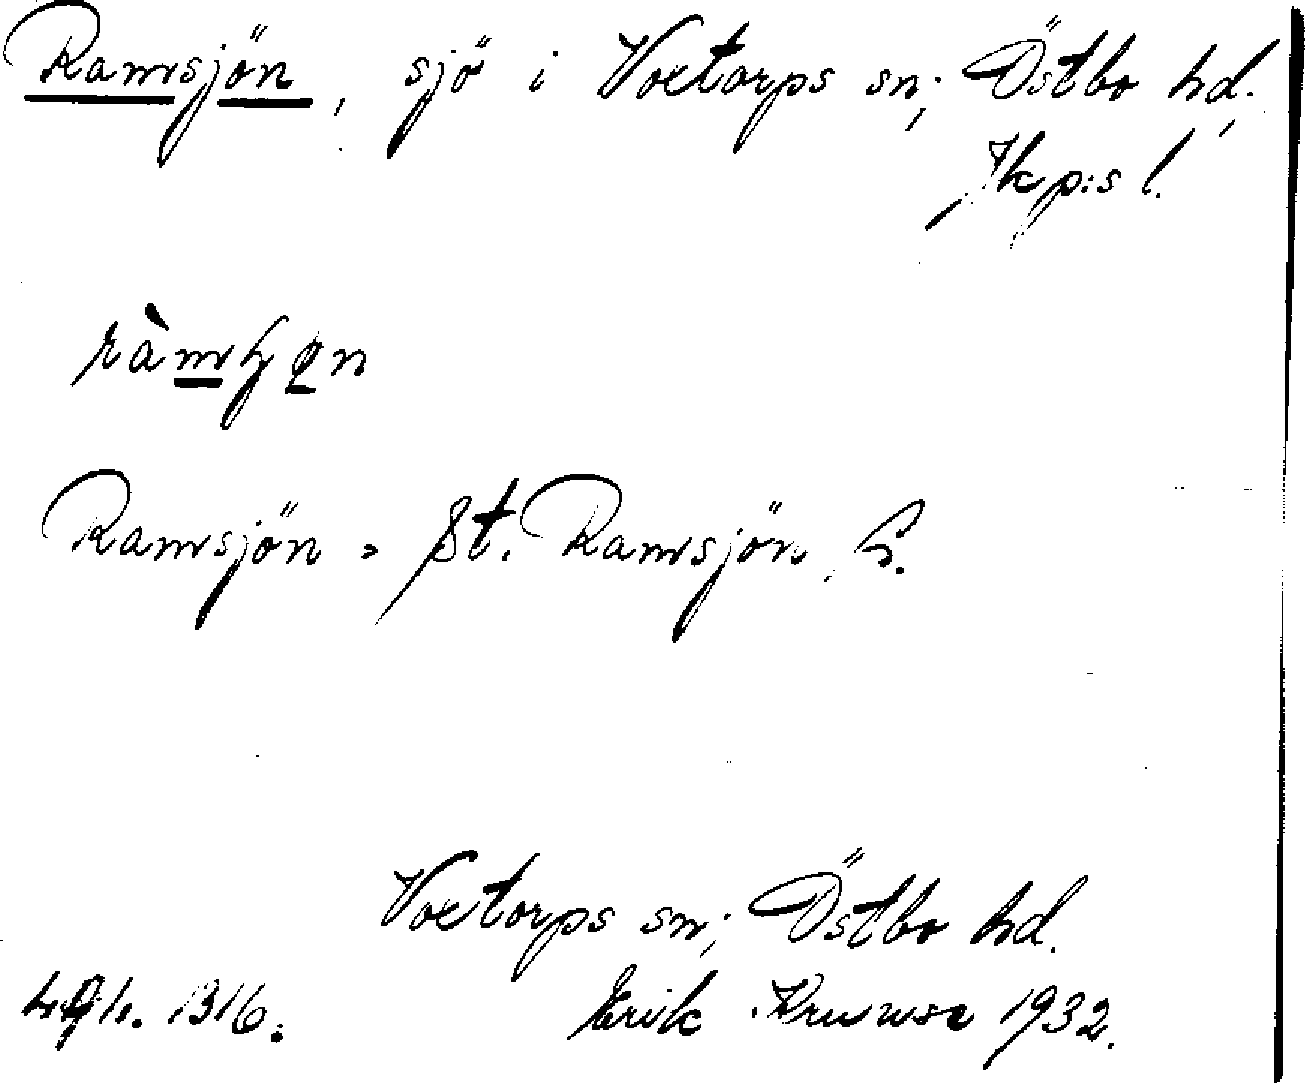 Ramsjön, sjö i Voxtorps sn, Östbo hd.,
Jkp:s l.
Ramsjön = St. Ramsjön,
Voxtorps sn, Östbo hd.
Erik 1932.